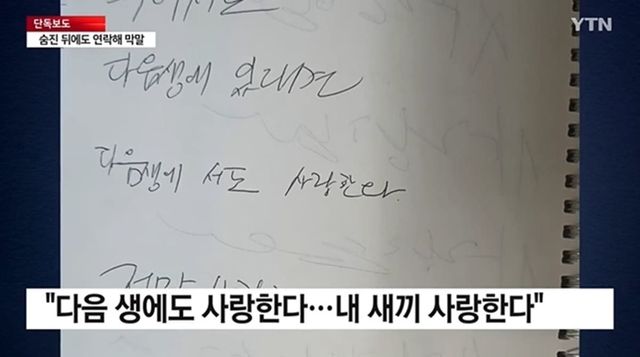 단독보도
숨진 뒤에도 연락해 막말
YTN
다음생에 있다면
다음생에 서도 사랑한다.
정말
"다음 생에도 사랑한다…내 새끼 사랑한다"